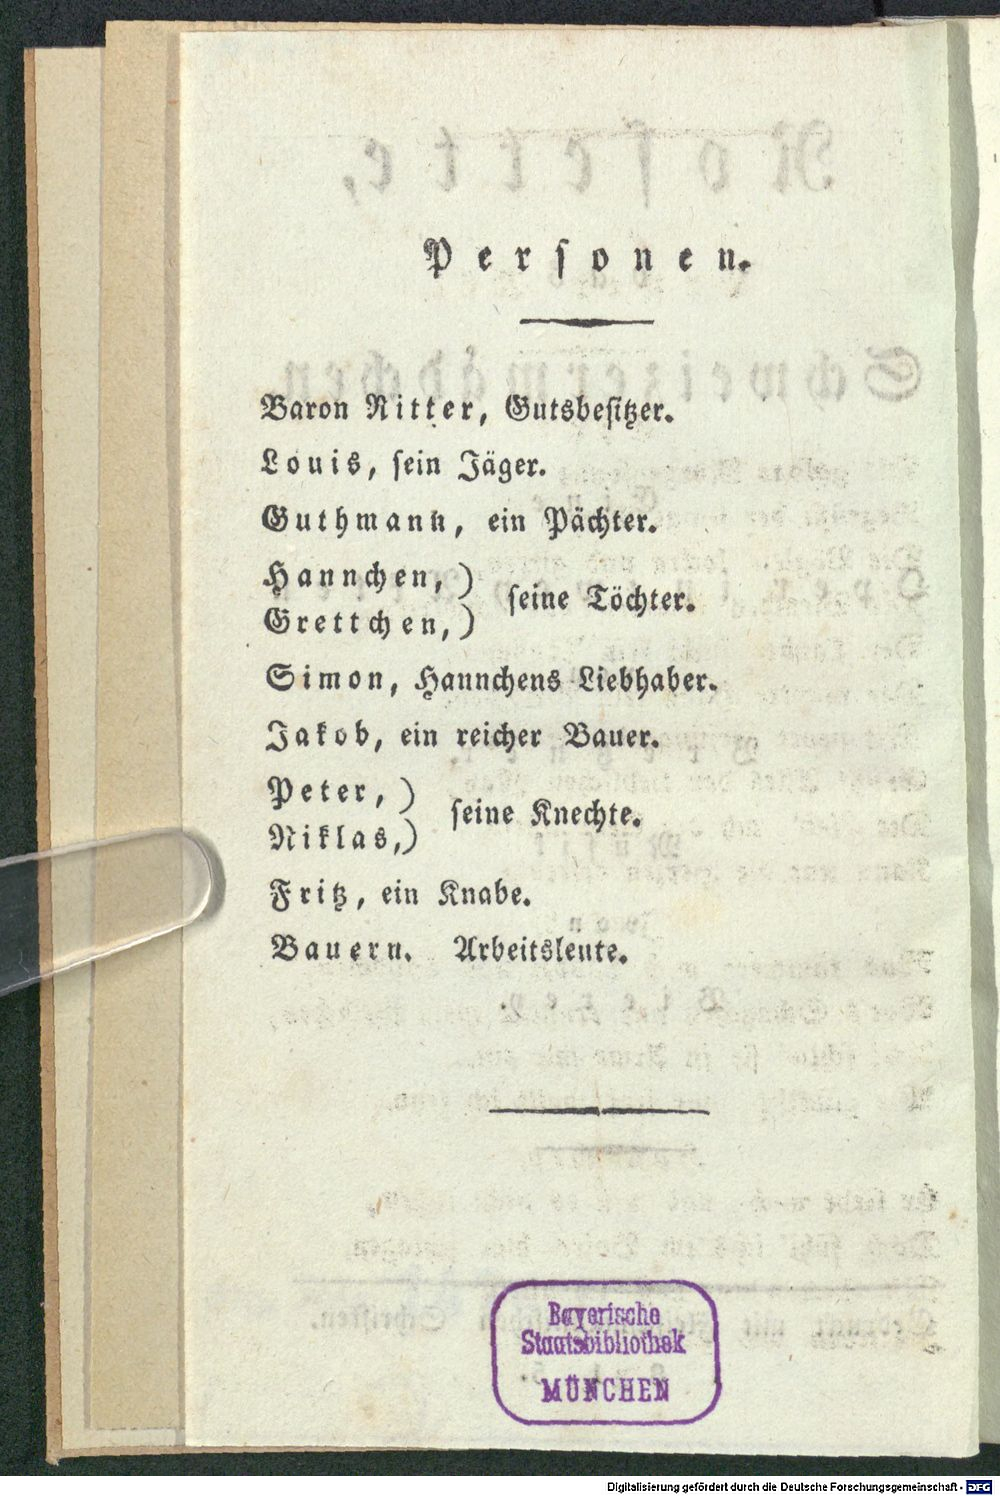 Personen.
Baron Ritter, Gutsbesitzer.
Louis, sein Jäger.
Guthmann, ein Pächter.
Hannchen, )
Grettchen, ) seine Töchter.
Simon, Hannchens Liebhaber.
Jakob, ein reicher Bauer.
Peter, )
Niklas, ) seine Knechte.
Fritz, ein Knabe.
Bauern. Arbeitsleute.
Bayerische
Staatsbibliothek
MÜNCHEN
Digitalisierung gefördert durch die Deutsche Forschungsgemeinschaft - DFG